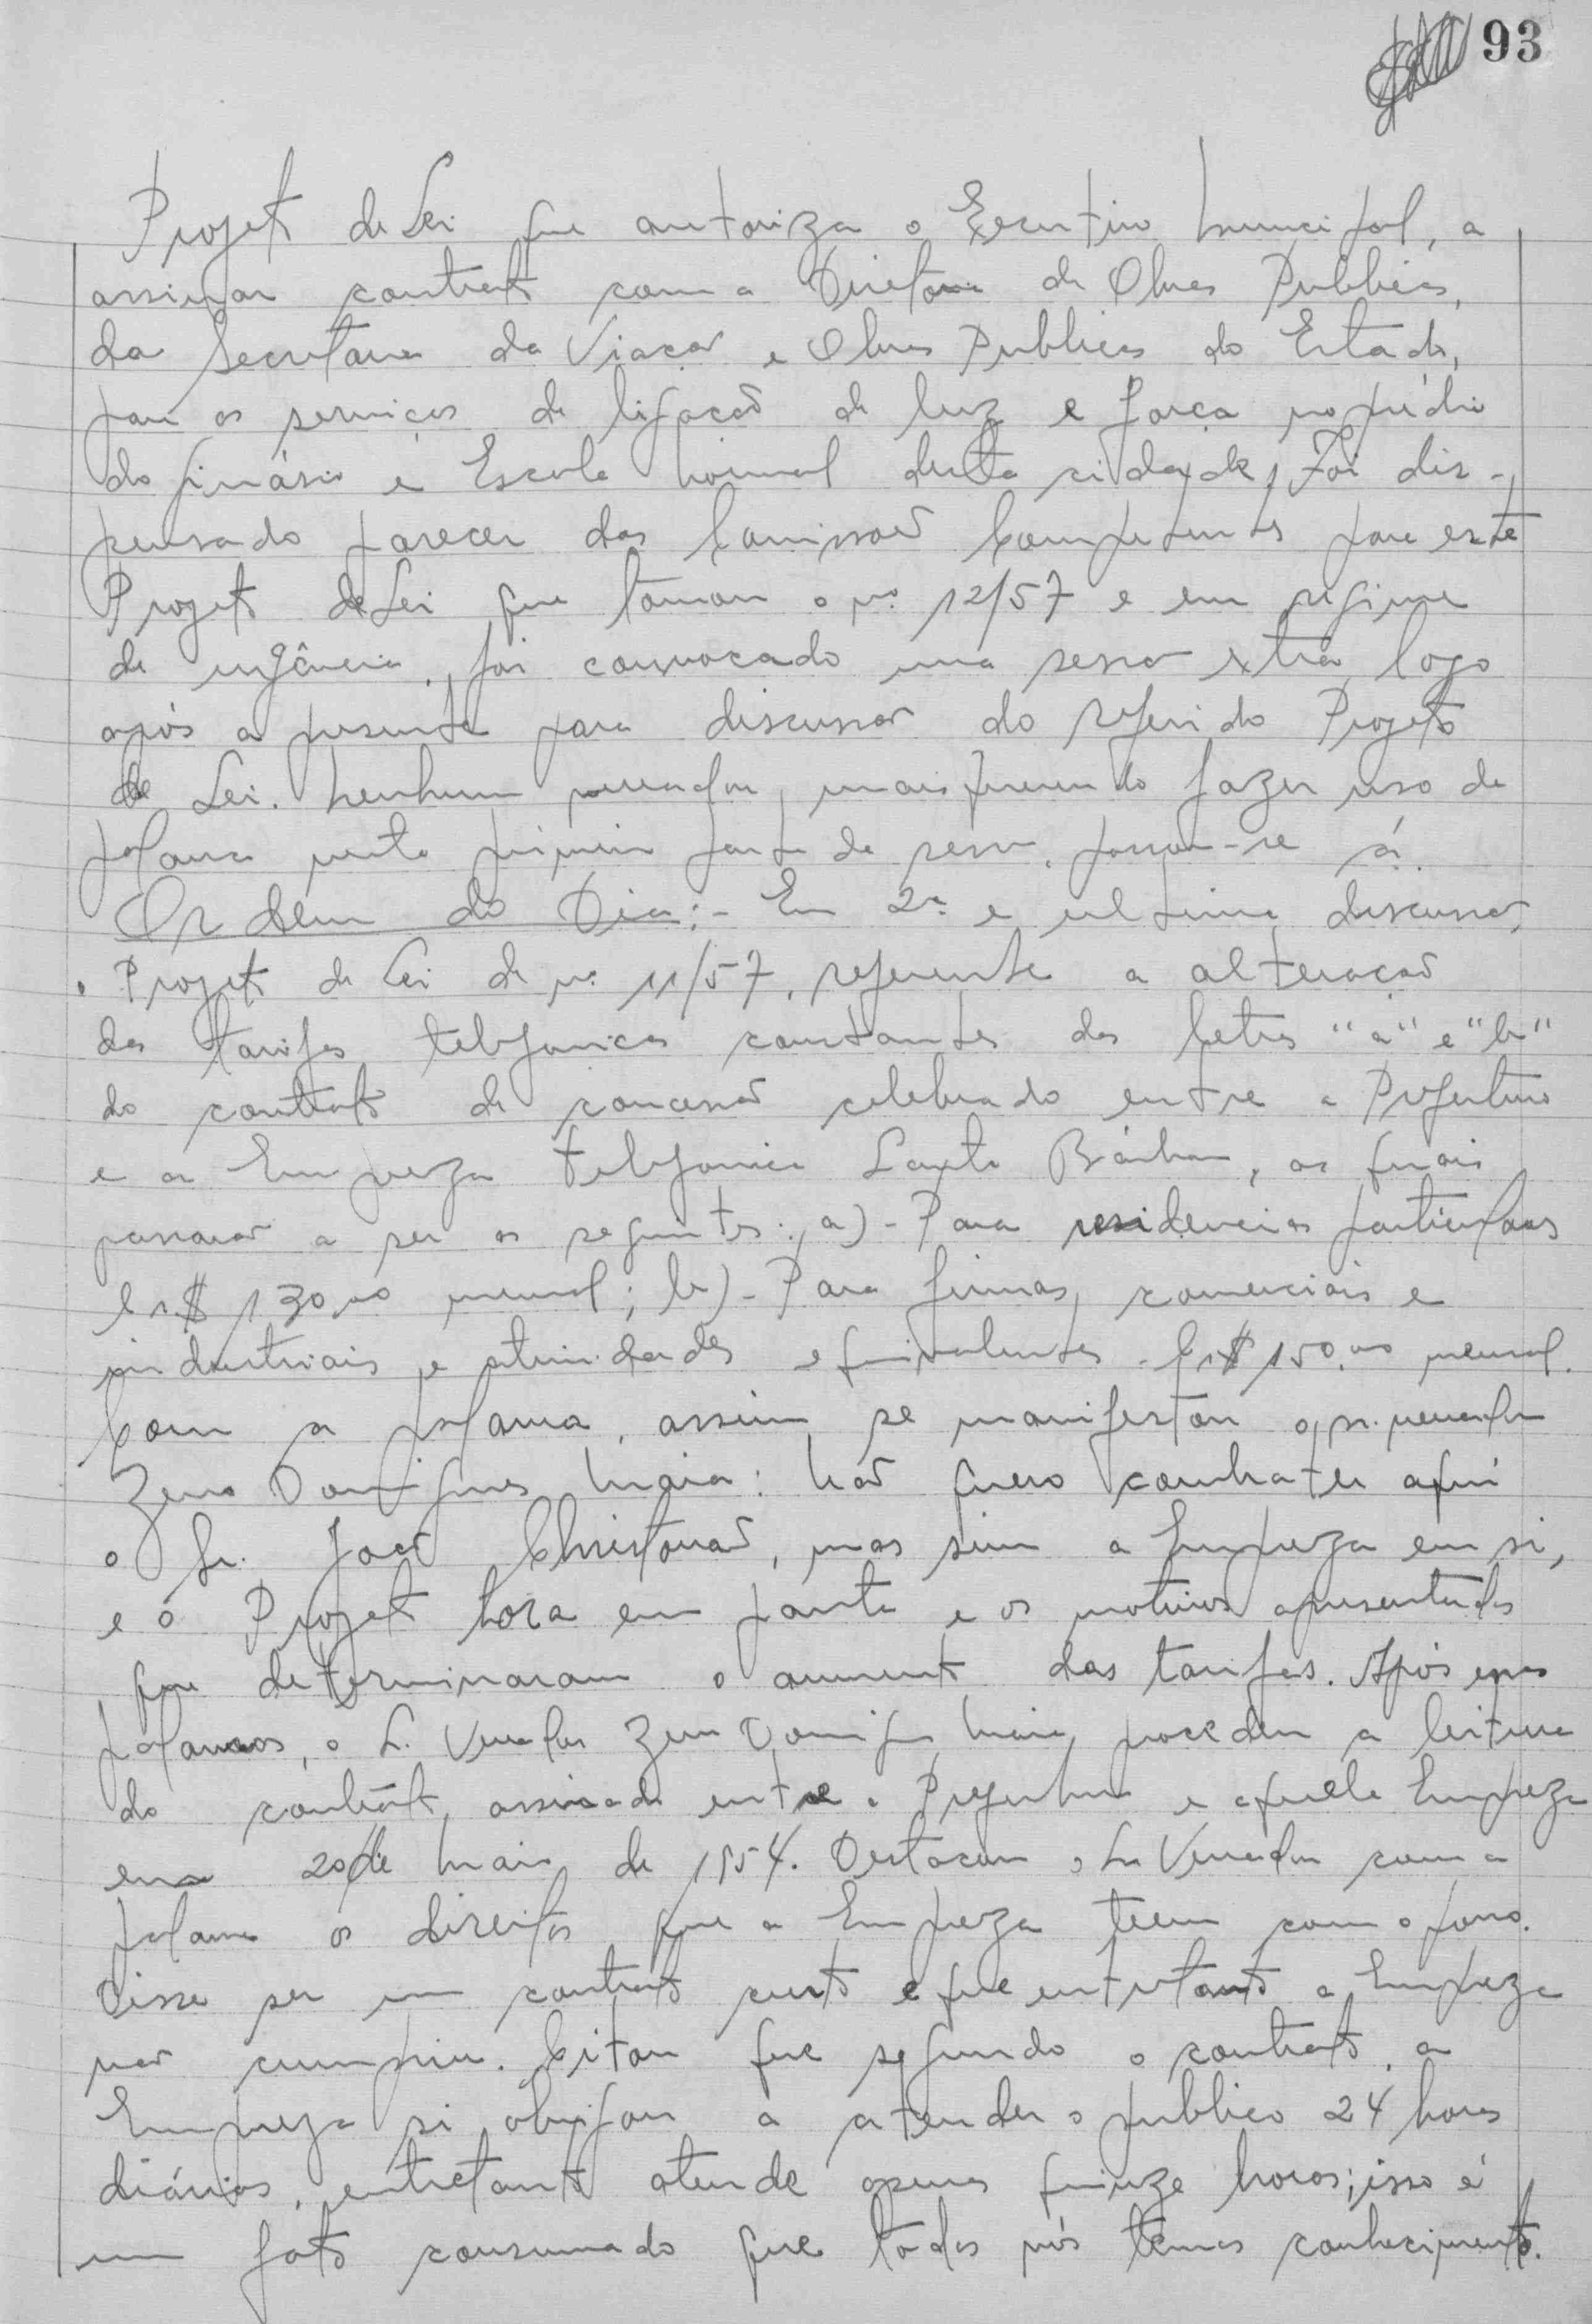 93
Projeto de Lei que autoriza o Executivo Municipal, a
assinar contrato com a Diretoria de Obras Publicas,
da Secretaria da Viação e Obras Publicas do Estado,
para os serviços de ligação de luz e força no prédio
do ginásio e Escola Normal desta cidade, Foi dis-
pensado parecer das Comissões Competentes para este
Projeto de Lei que tomou o nº 12/57 e em regime
de urgência, foi convocado uma sessão extra, logo
após a presente para discussão do referido Projeto
de Lei. Nenhum vereador, mais querendo fazer uso da
palavra nesta primeira parte da sessão, passou-se á.
Ordem do Dia:- Em 2ª e ultima discussão,
o Projeto de Lei de nº 11/57, referente a alteração
das tarifas telefonicas constantes das letras "a" e "b"
do contrato de concessão celebrado entre a Prefeitura
e a Empreza Telefonica Santa Bárbara, as quais
passarão a ser as seguintes: a)- Para residencias particulares
Cr$ 130,00 mensal; b)- Para firmas, comerciais e
industriais e atividades equivalentes - Cr$ 150,00 mensal.
Com a palavra, assim se manifestou o sr. vereador
Zeno Domingues Maia: Não quero combater aqui
o Sr. João Christovão, mas sim a Empreza em si,
e o Projeto hora em pauta e os motivos apresentados
que determinaram o aumento das tarifas. Após essas
palavras, o Sr. Vereador Zeno Domingues Maia, procedeu a leitura
do contráto, assinado entre a Prefeitura e aquela Empreza
em 20 de Maio de 1954. Destacou o Sr Vereador com a
palavra os direitos que a Empreza teem com o povo.
Disse ser um contrato curto e que entretanto a Empreza
não cumpriu. Citou que segundo o contrato, a
Empreza si obrigou a atender o publico 24 horas
diárias, entretanto atende apenas quinze horas; isso é
um fato consumado que todos nós temos conhecimento.